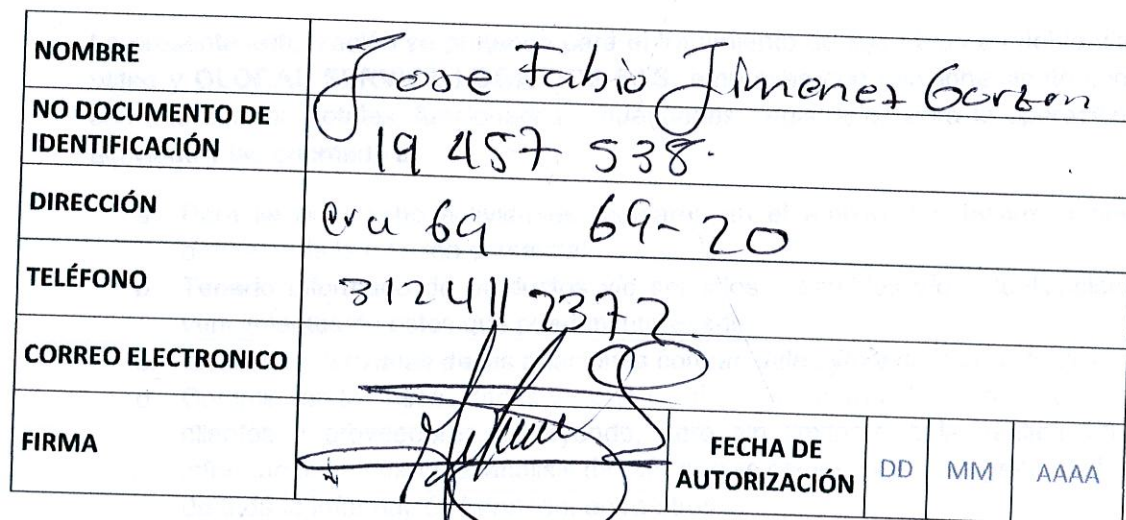 NOMBRE Jose Fabio Jimenez Garzon
NO DOCUMENTO DE
IDENTIFICACIÓN 19 457 538.
DIRECCIÓN 69 69-20
TELÉFONO 312411 2372
CORREO ELECTRONICO
FIRMA
FECHA DE
AUTORIZACIÓN DD MM AAAA